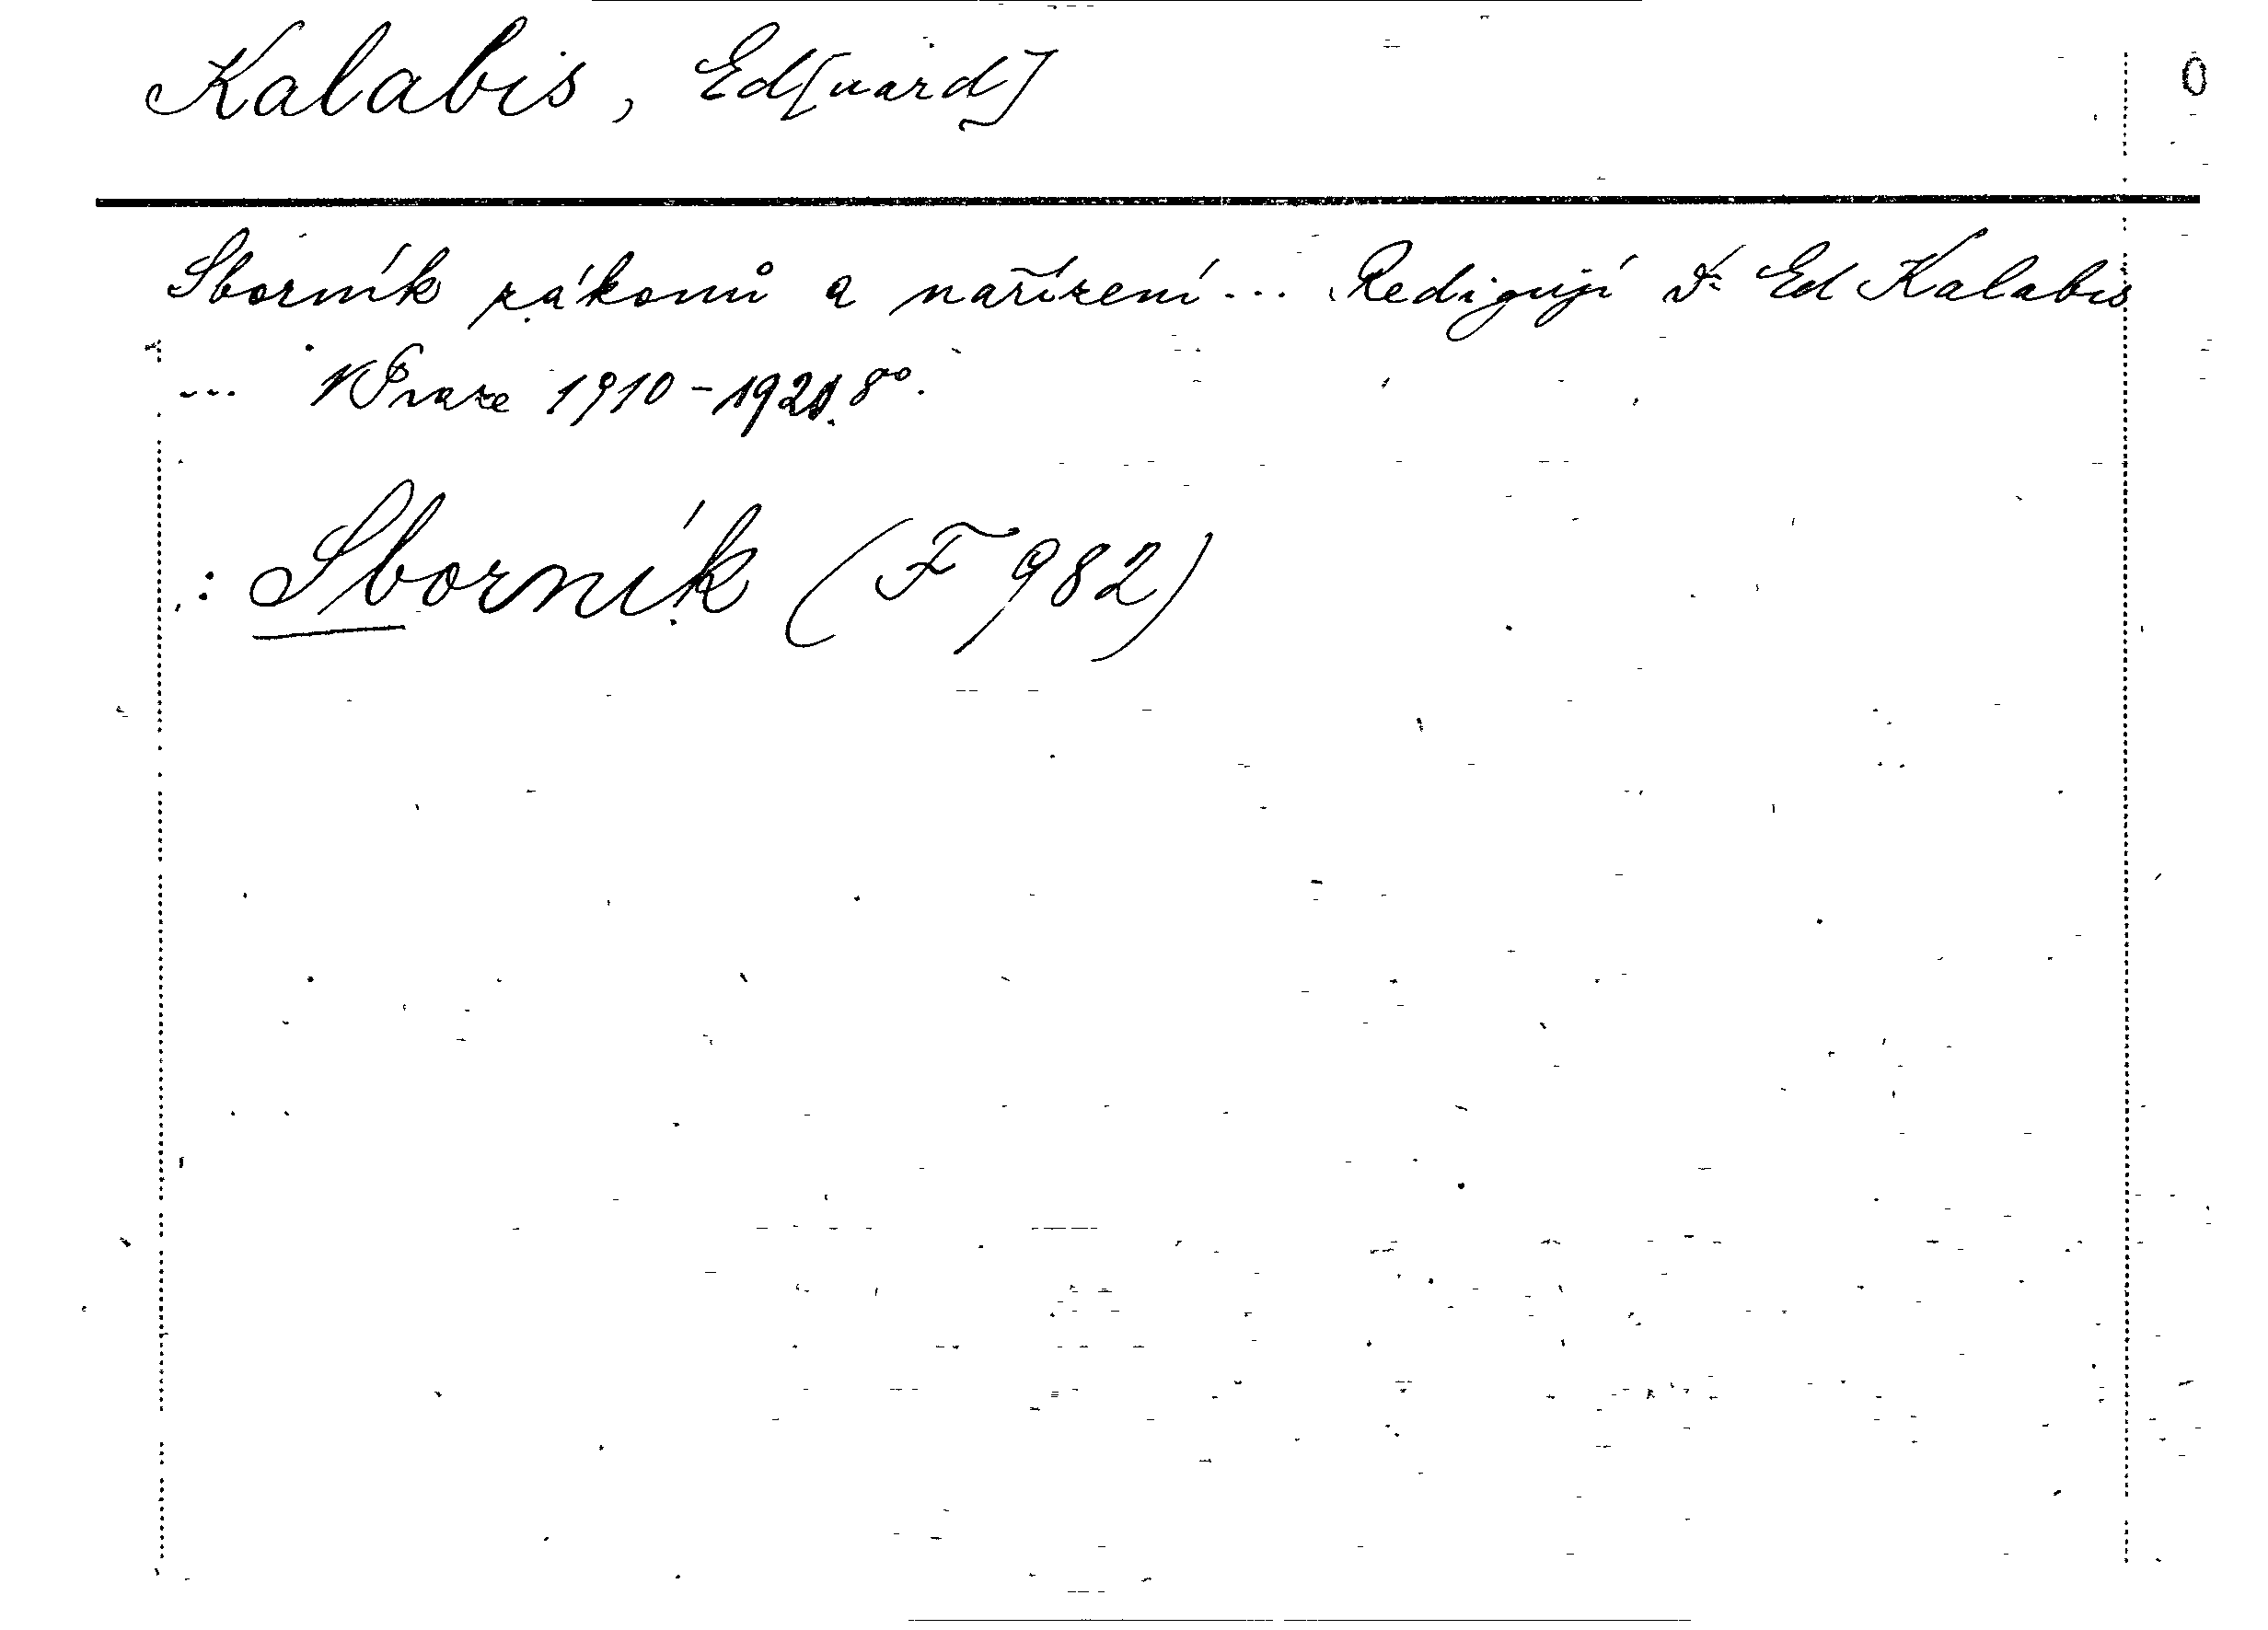 Kalabis, Ed[uard]
0
Sborník zákonů a nařízení... Redigují Dr Ed Kalabis
... V Praze 1910-1921. 8°.
: Sborník (F 982)